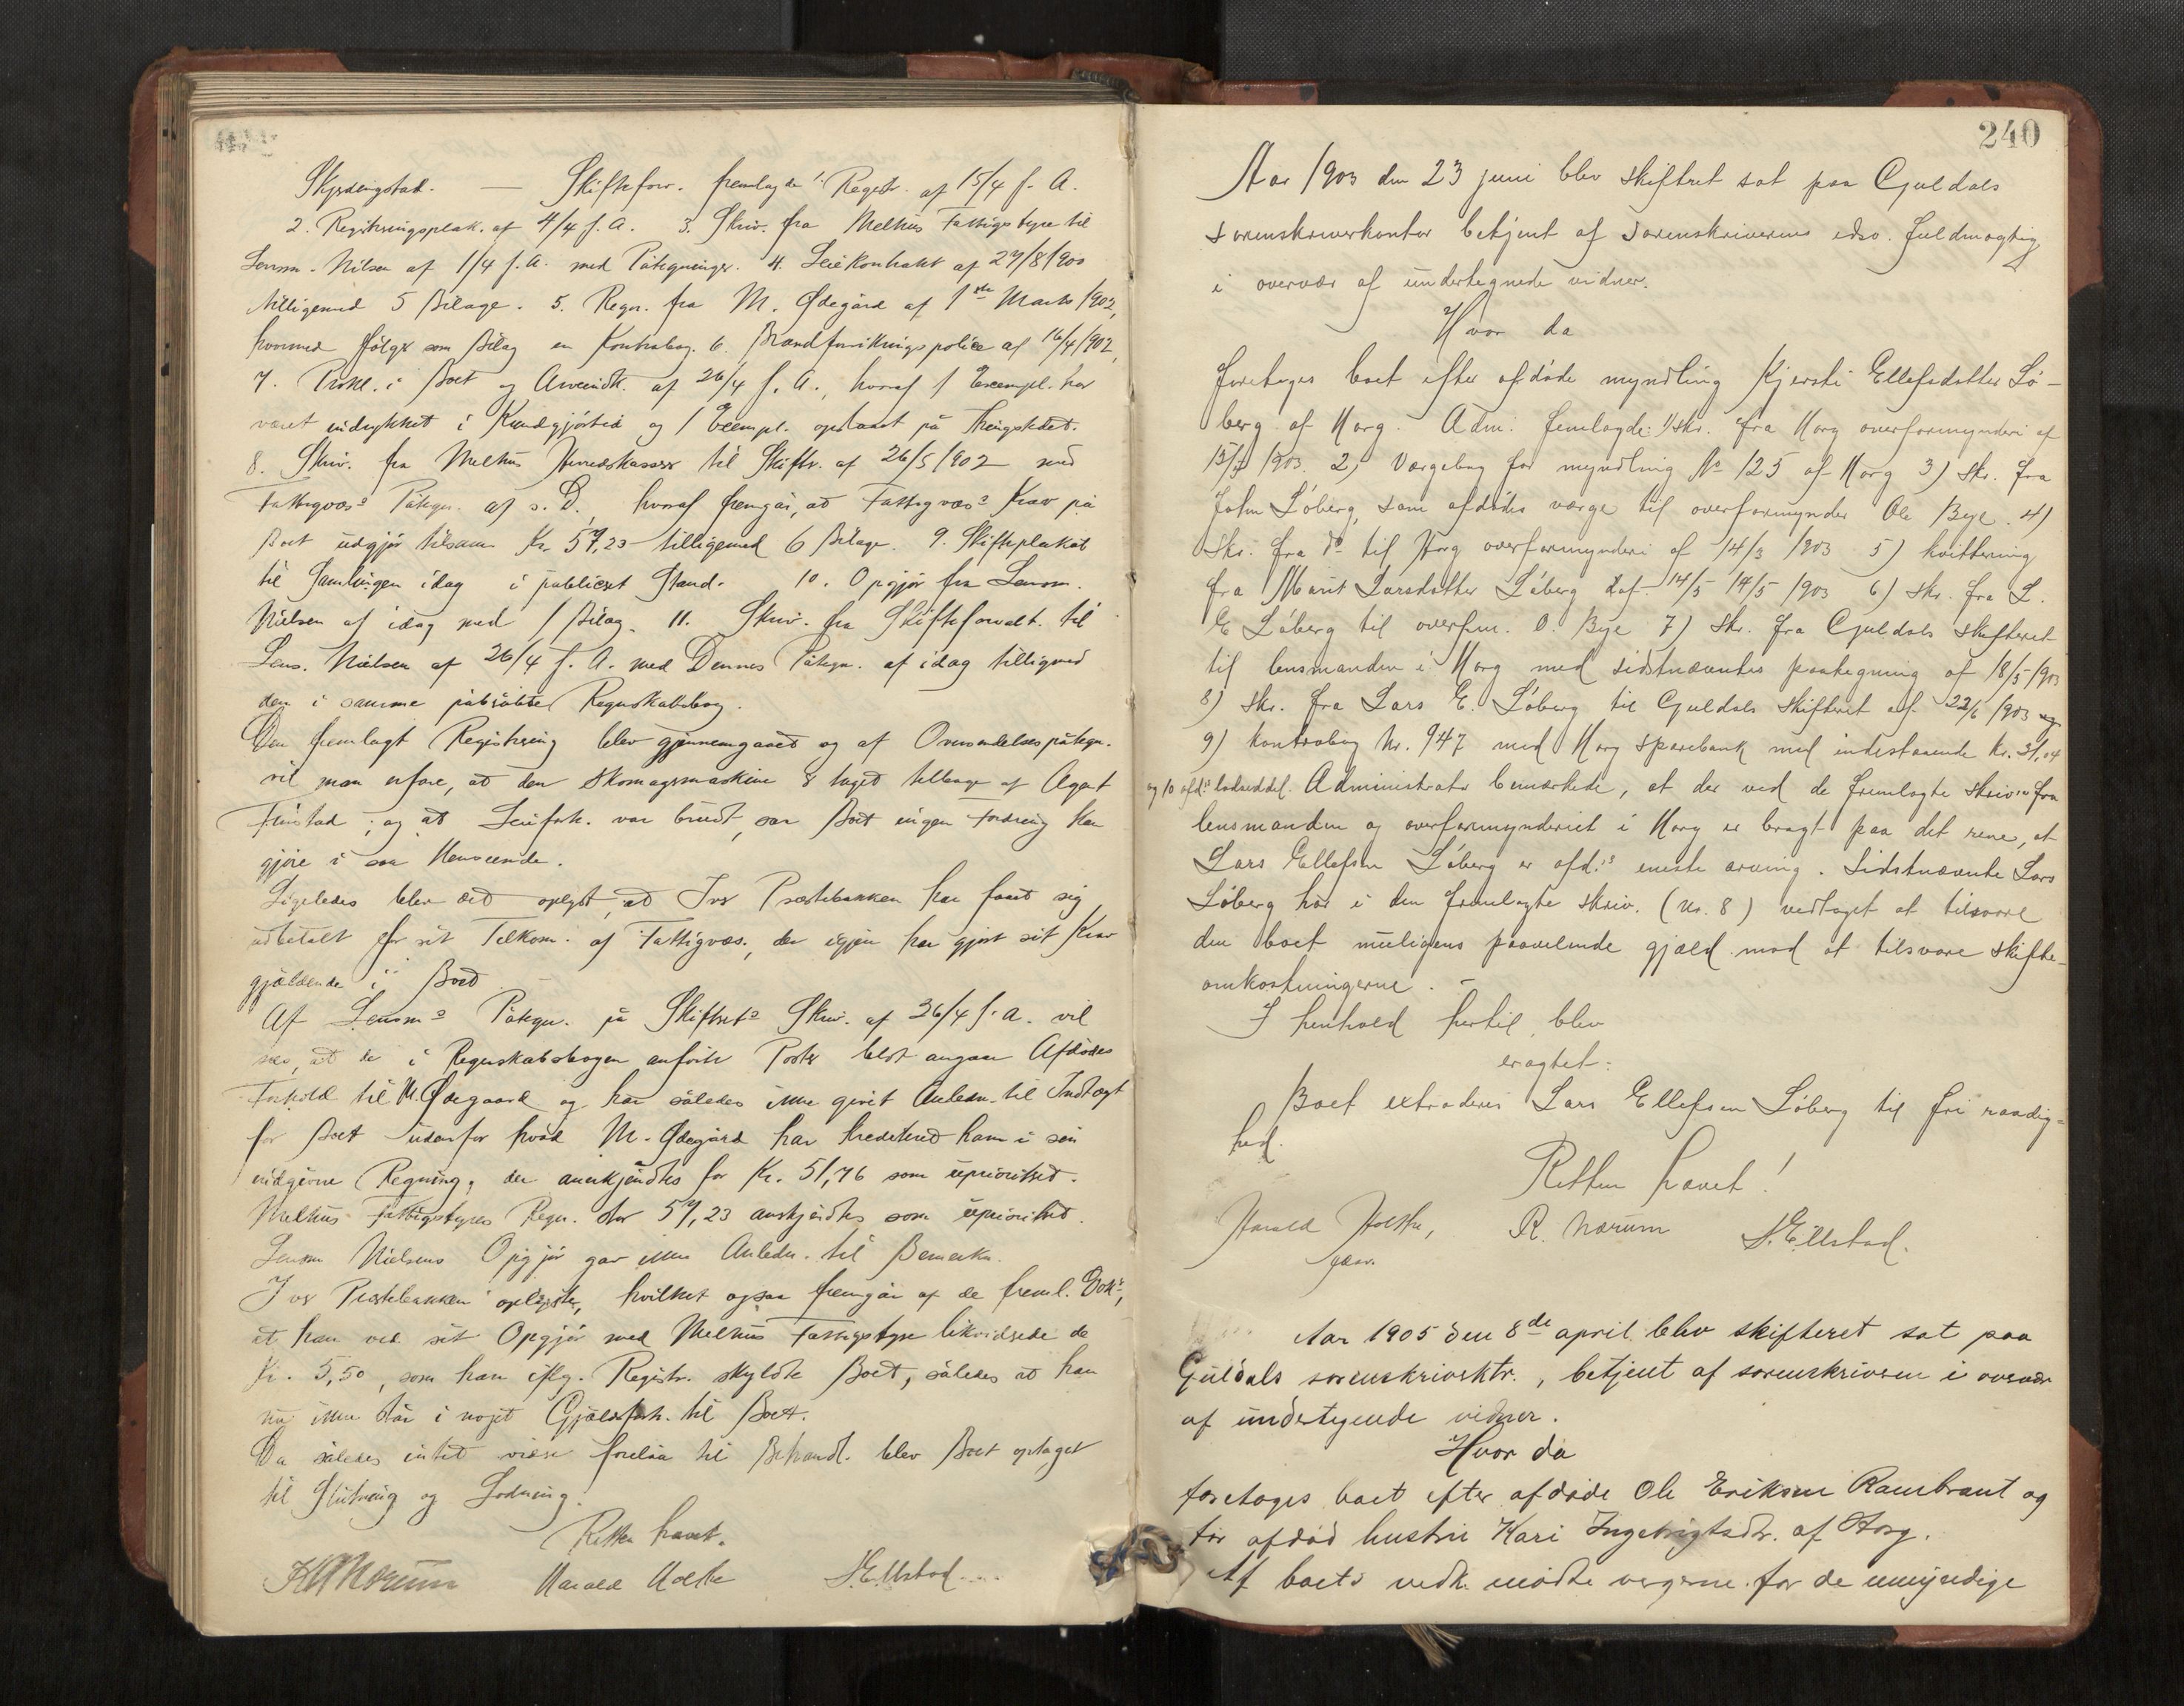 Skjerdingstad. — Skifteforv. fremlagde 1. Registr. af 15/4 f. A.
2. Registreringsplak. af 4/4 f. A. 3. Skriv. fra Melhus Fattigstyre til
Lensm. Nilsen af 1/4 f. A. med Påtegninger. 4. Leiekontrakt af 29/8 1900
tilligemed 5 Bilage. 5. Regn. fra M. Ødegård af 1ste Marts 1902,
hvormed følger som Bilag en Kontrabog. 6. Brandforsikringspolice af 16/4 1902,
7. Prokl. i Boet og Arveindk. af 26/4 f. A., hvoraf 1 Exempl. har
været indrykket i Kundgjørtid og 1 Exempl. opslaaet på Thingstedet.
8. Skriv. fra Melhus Herredskasserer til Skiftr. af 26/5 1902 med
Fattigvæs's Påtegn. af s. D., hvoraf fremgår, at Fattigvæs's Krav på
Boet udgjør tilsam. Kr. 59,23 tilligemed 6 Bilage. 9. Skifteplakat
til Samlingen idag i publiceret Stand. 10. Opgjør fra Lensm.
Nielsen af idag med 1 Bilag. 11. Skriv. fra Skifteforvalt. til
Lens. Nielsen af 26/4 f. A. med Dennes Påtegn. af idag tilligemed
den i samme påberåbte Regnskabsbog.
Den fremlagt Registrering blev gjennemgaaet og af Oversendelsespåtegn.
vil man erfare, at den Skomagermaskine er taget tilbage af Agent
Finstad; og at Leiefork. var brudt, saa Boet ingen Fordring kan
gjøre i saa Henseende.
Ligeledes blev det oplyst, at Iver Præstebakken har faaet sig
udbetalt for sit Tilkom. af Fattigvæs., der igjen har gjort sit Krav
gjældende i Boet.
Af Lensm's Påtegn. på Skifteret's Skriv. af 26/4 f. A. vil
sees, at de i Regnskabsbogen anførte Poster blot angaar Afdødes
Forhold til M. Ødegaard og har således ikke givet Anledn. til Indtægt
for Boet udenfor hvad M. Ødegård har krediteret ham i sin
indgivne Regning, der anerkjendtes for Kr. 51,76 som uprioritet.
Melhus Fattigstyres Regn. stor 59,23 anerkjendtes som uprioritet.
Lensm Nielsens Opgjør gav ikke Anledn. til Bemærkn.
Iver Præstebakken oplyste, hvilket ogsaa fremgår af de freml. Dok's,
at han ved sit Opgjør med Melhus Fattigstyre likviderede de
Kr. 5,50, som han iflg. Registr. skyldte Boet, således at han
nu ikke står i noget Gjældsforh. til Boet.
Da således intet videre forelaa til Behandl. blev Boet optaget
til Slutning og Lodning.
Retten hævet.
Nærum Harald Holthe S. Ellstad.
240
Aar 1903 den 23 juni blev skifteret sat paa Guldals
sorenskriverkontor betjent af sorenskriverens edsv. fuldmægtig
i overvær af undertegnede vidner.
Hvor da
foretoges boet efter afdøde myndling Kjersti Ellefsdatter Lø-
berg af Horg. Adm. fremlagde: 1) skr. fra Horg overformynderi af
15/3 1903. 2) Værgebog for myndling No 125 af Horg 3) Skr. fra
John Løberg, som afdødes værge til overformynder Ole Bye. 4)
Skr. fra do til Horg overformynderi af 14/3 1903 5) kvittering
fra Marit Larsdatter Løberg dat. 14/5 14/5 1903 6) Skr. fra L.
E Løberg til overfm. O. Bye 7) Skr. fra Guldals skifteret
til lensmanden i Horg med sidstnævntes paategning af 18/5 1903
8) Skr. fra Lars E. Løberg til Guldals skifteret af 22/6 1903 og
9) Kontrabog Nr. 947 med Horg sparebank med indestaaende Kr. 31,04
og 10 afd's lodseddel. Administrator bemærkede, at der ved de fremlagte skriv. fra
lensmanden og overformynderiet i Horg er bragt paa det rene, at
Lars Ellefsen Løberg er afd:s eneste arving. Sidstnævnte Lars
Løberg har i den fremlagte skriv. (Nr. 8) vedtaget at tilsvare
den boet muligens paahvilende gjæld mod at tilsvare skifte-
omkostningerne. –
I henhold hertil blev
eragtet:
Boet extraderes Lars Ellefsen Løberg til fri raadig-
hed.
Retten hævet!
Harald Holthe, R. Nærum S. Ellstad.
Aar 1905 den 8de april blev skifteret sat paa
Guldals sorenskriverktr., betjent af sorenskriveren i overvær
af undertegnede vidner.
Hvor da
foretoges boet efter afdøde Ole Eriksen Rambraut og
før afdød hustru Kari Ingebrigtsdtr. af Horg.
Af boets vedk. mødte vergerne for de umyndige